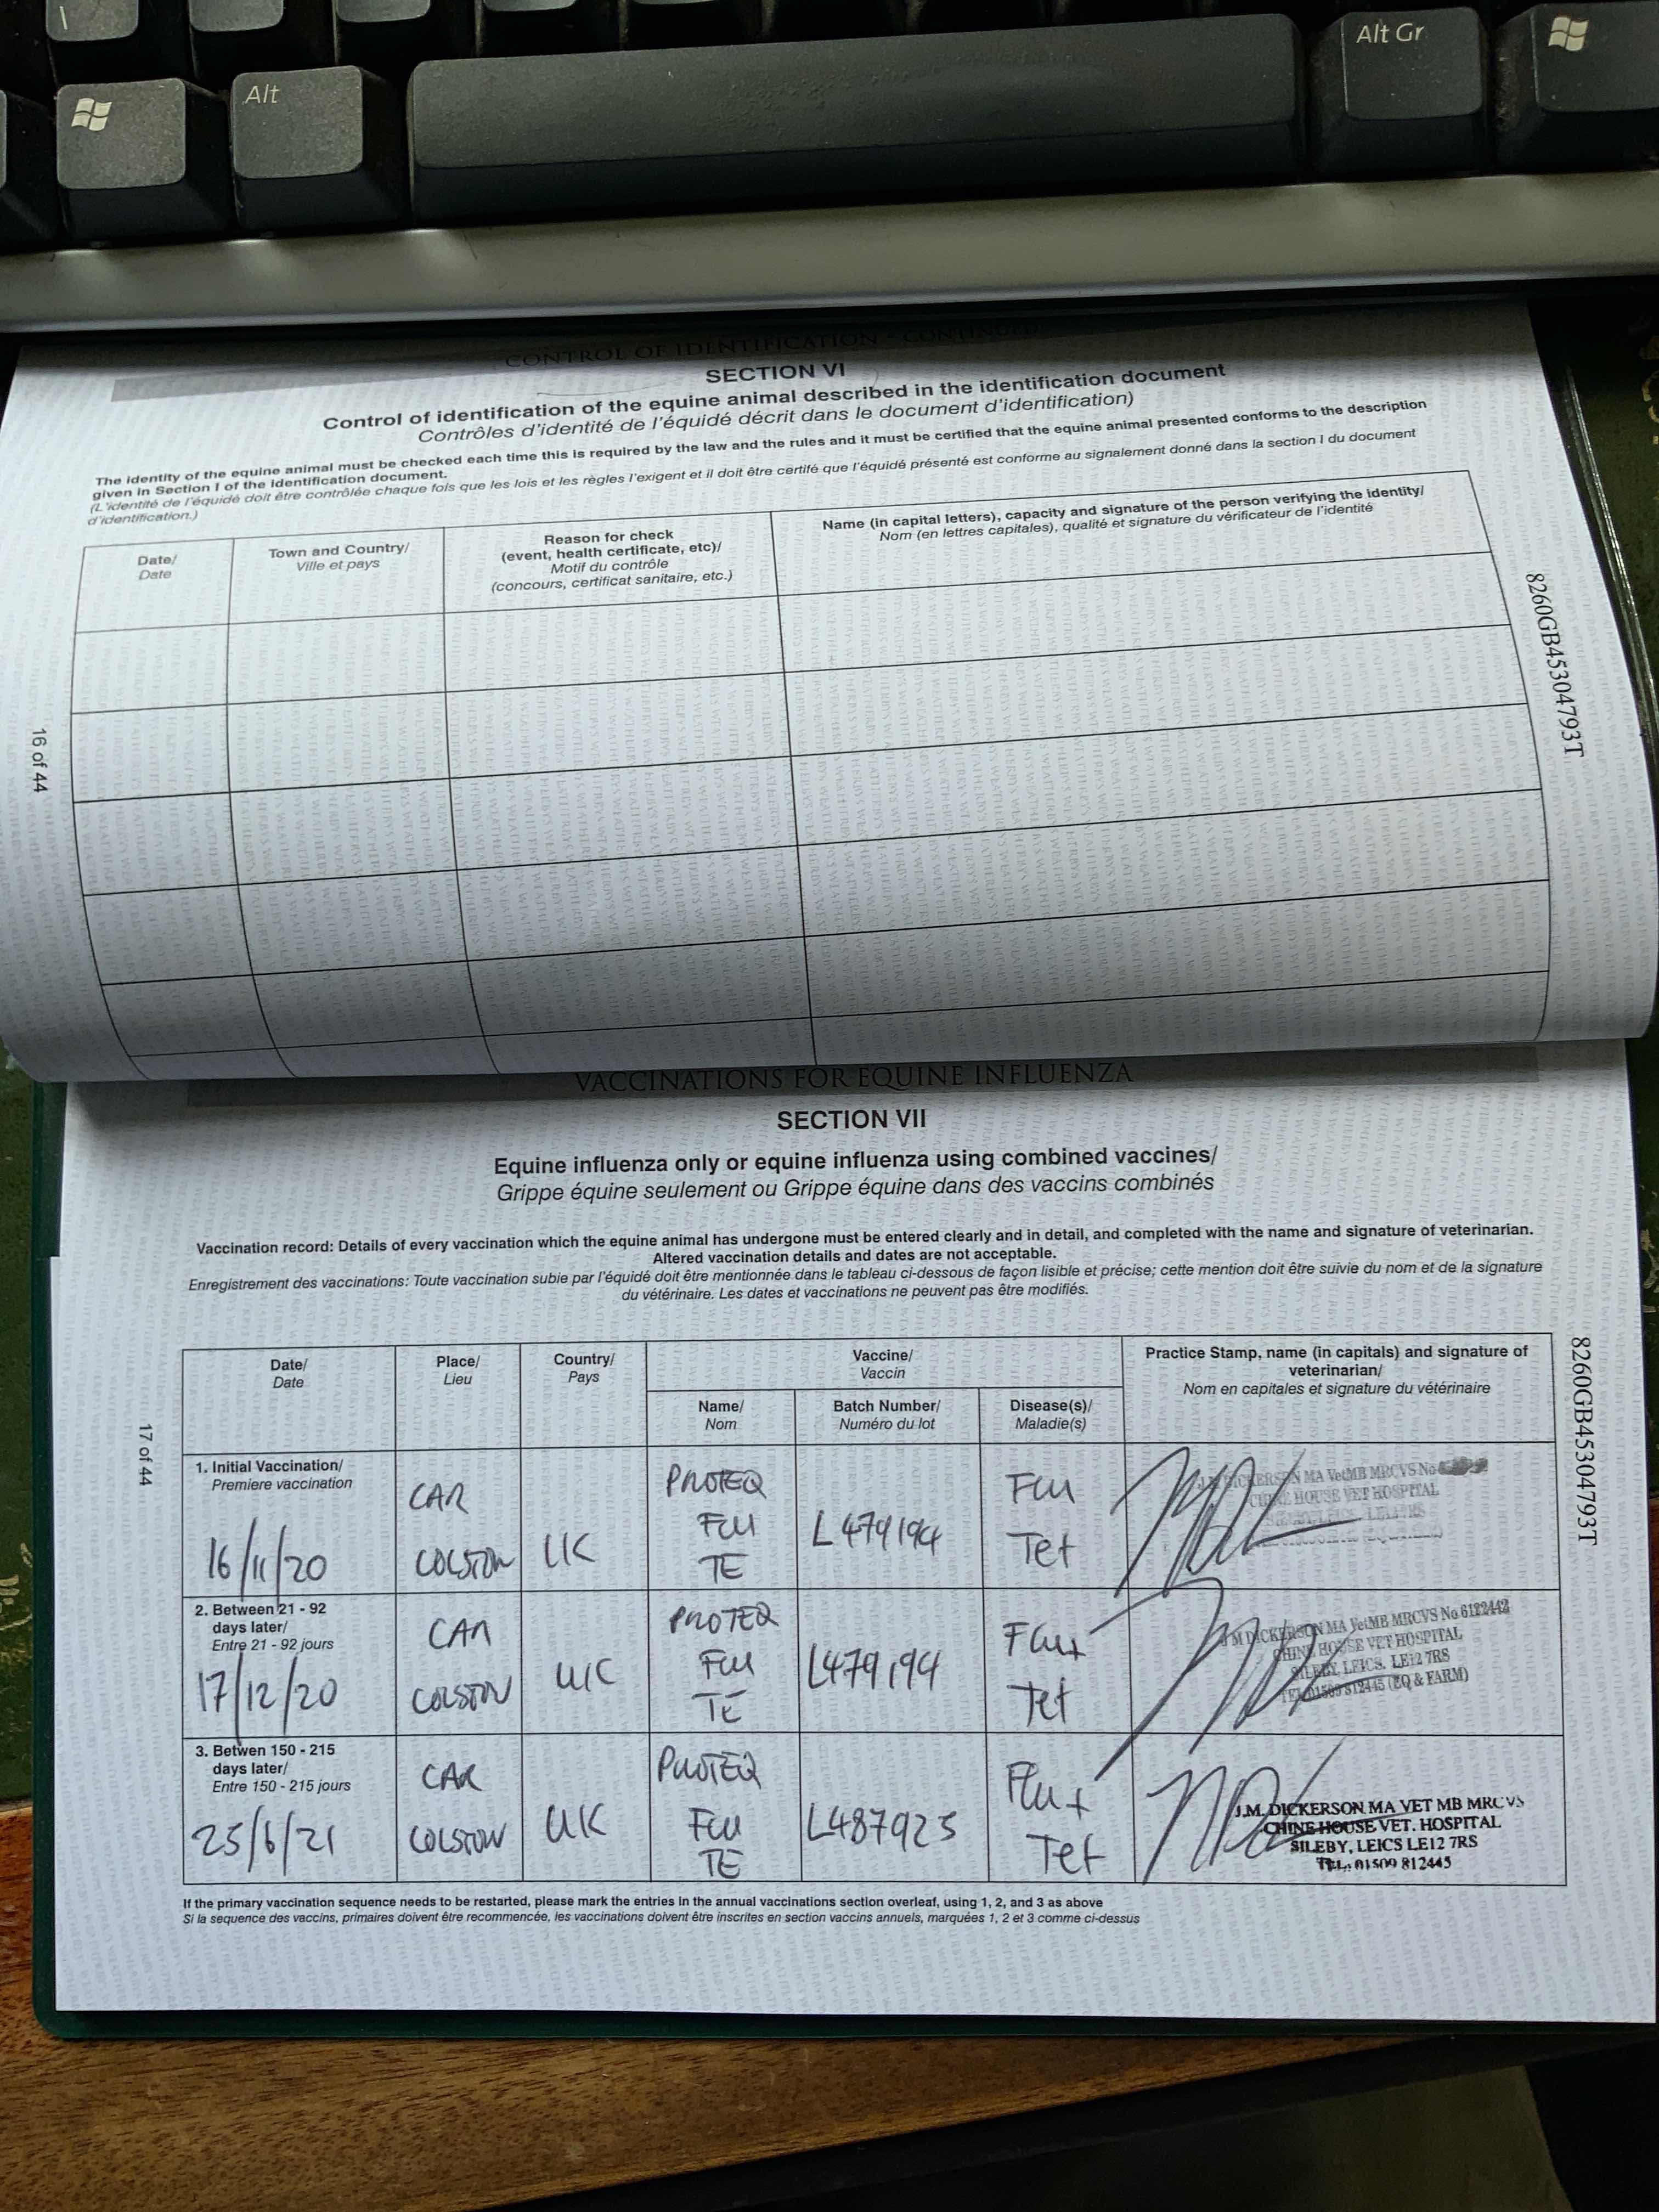 Alt
Alt Gr
CONTROL OF IDENTIFICATION - CONTINUED
SECTION VI
Control of identification of the equine animal described in the identification document
Contrôles d'identité de l'équidé décrit dans le document d'identification)
The identity of the equine animal must be checked each time this is required by the law and the rules and it must be certified that the equine animal presented conforms to the description
given in Section I of the identification document.
(L'identité de l'équidé doit être contrôlée chaque fois que les lois et les règles l'exigent et il doit être certifé que l'équidé présenté est conforme au signalement donné dans la section I du document
d'identification.)
Date/
Date
Town and Country/
Ville et pays
Reason for check
(event, health certificate, etc)/
Motif du contrôle
(concours, certificat sanitaire, etc.)
Name (in capital letters), capacity and signature of the person verifying the identity/
Nom (en lettres capitales), qualité et signature du vérificateur de l'identité
16 of 44
8260GB45304793T
VACCINATIONS FOR EQUINE INFLUENZA
SECTION VII
Equine influenza only or equine influenza using combined vaccines/
Grippe équine seulement ou Grippe équine dans des vaccins combinés
Vaccination record: Details of every vaccination which the equine animal has undergone must be entered clearly and in detail, and completed with the name and signature of veterinarian.
Altered vaccination details and dates are not acceptable.
Enregistrement des vaccinations: Toute vaccination subie par l'équidé doit être mentionnée dans le tableau ci-dessous de façon lisible et précise; cette mention doit être suivie du nom et de la signature
du vétérinaire. Les dates et vaccinations ne peuvent pas être modifiés.
Date/
Date
Place/
Lieu
Country/
Pays
Vaccine/
Vaccin
Name/
Nom
Batch Number/
Numéro du lot
Disease(s)/
Maladie(s)
Practice Stamp, name (in capitals) and signature of
veterinarian/
Nom en capitales et signature du vétérinaire
1. Initial Vaccination/
Premiere vaccination
16/11/20
CAR
COLSTON
UK
PROTEQ
FLU
TE
L479194
Flu
Tet
J.M DICKERSON MA VetMB MRCVS No
CHINE HOUSE VET HOSPITAL
2. Between 21 - 92
days later/
Entre 21 - 92 jours
17/12/20
CAR
COLSTON
UK
PROTEQ
FLU
TE
L479194
Flu+
Tet
J M DICKERSON MA VetMB MRCVS No 6122442
CHINE HOUSE VET HOSPITAL
SILEBY, LEICS. LE12 7RS
TEL 01509 812445 (EQ & FARM)
3. Betwen 150 - 215
days later/
Entre 150 - 215 jours
25/6/21
CAR
COLSTON
UK
PROTEQ
FLU
TE
L487925
Flu+
Tet
J.M. DICKERSON MA VET MB MRCVS
CHINE HOUSE VET. HOSPITAL
SILEBY, LEICS LE12 7RS
TEL: 01509 812445
If the primary vaccination sequence needs to be restarted, please mark the entries in the annual vaccinations section overleaf, using 1, 2, and 3 as above
Si la sequence des vaccins, primaires doivent être recommencée, les vaccinations doivent être inscrites en section vaccins annuels, marquées 1, 2 et 3 comme ci-dessus
17 of 44
8260GB45304793T